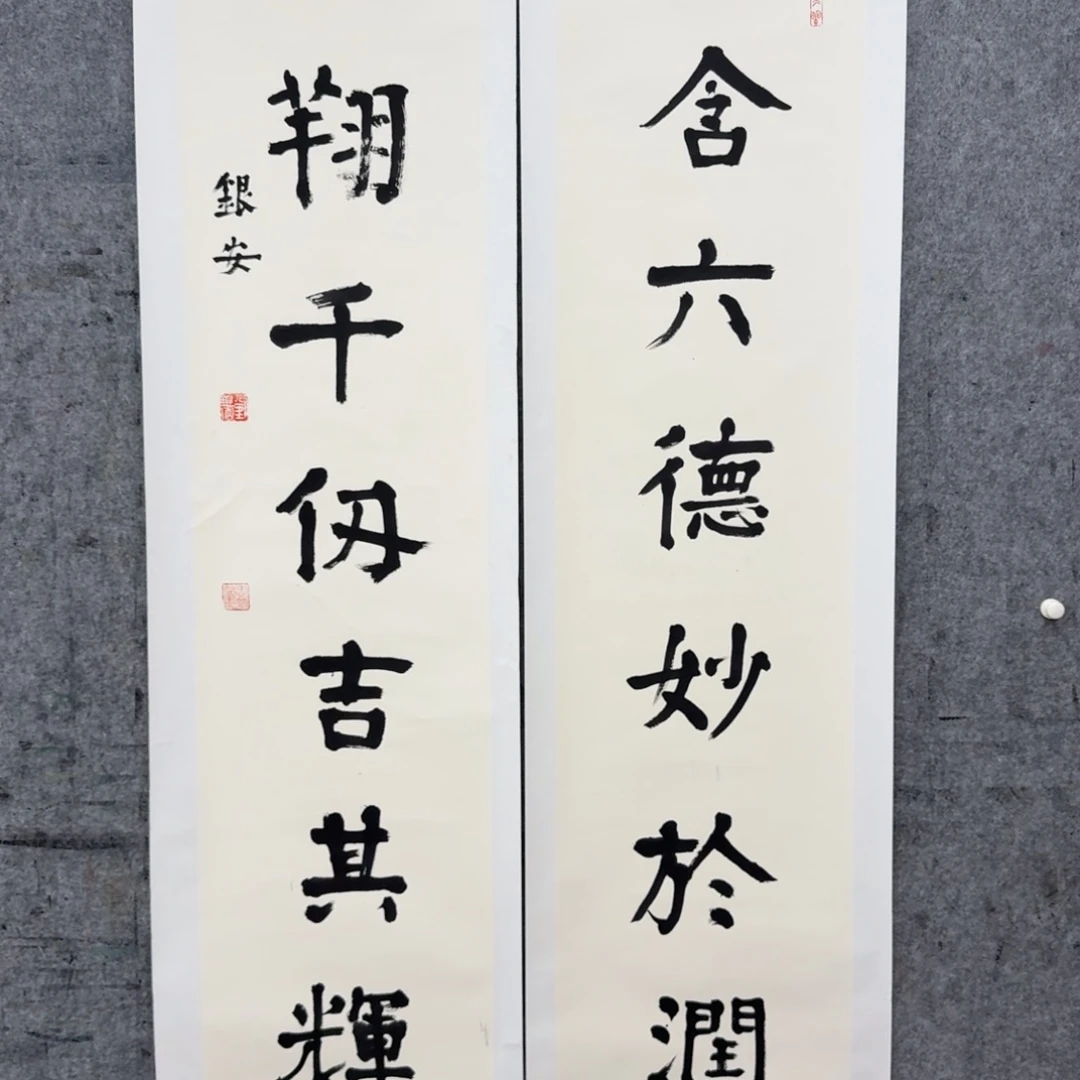 含六德妙於潤
翔千仞吉其輝
銀安